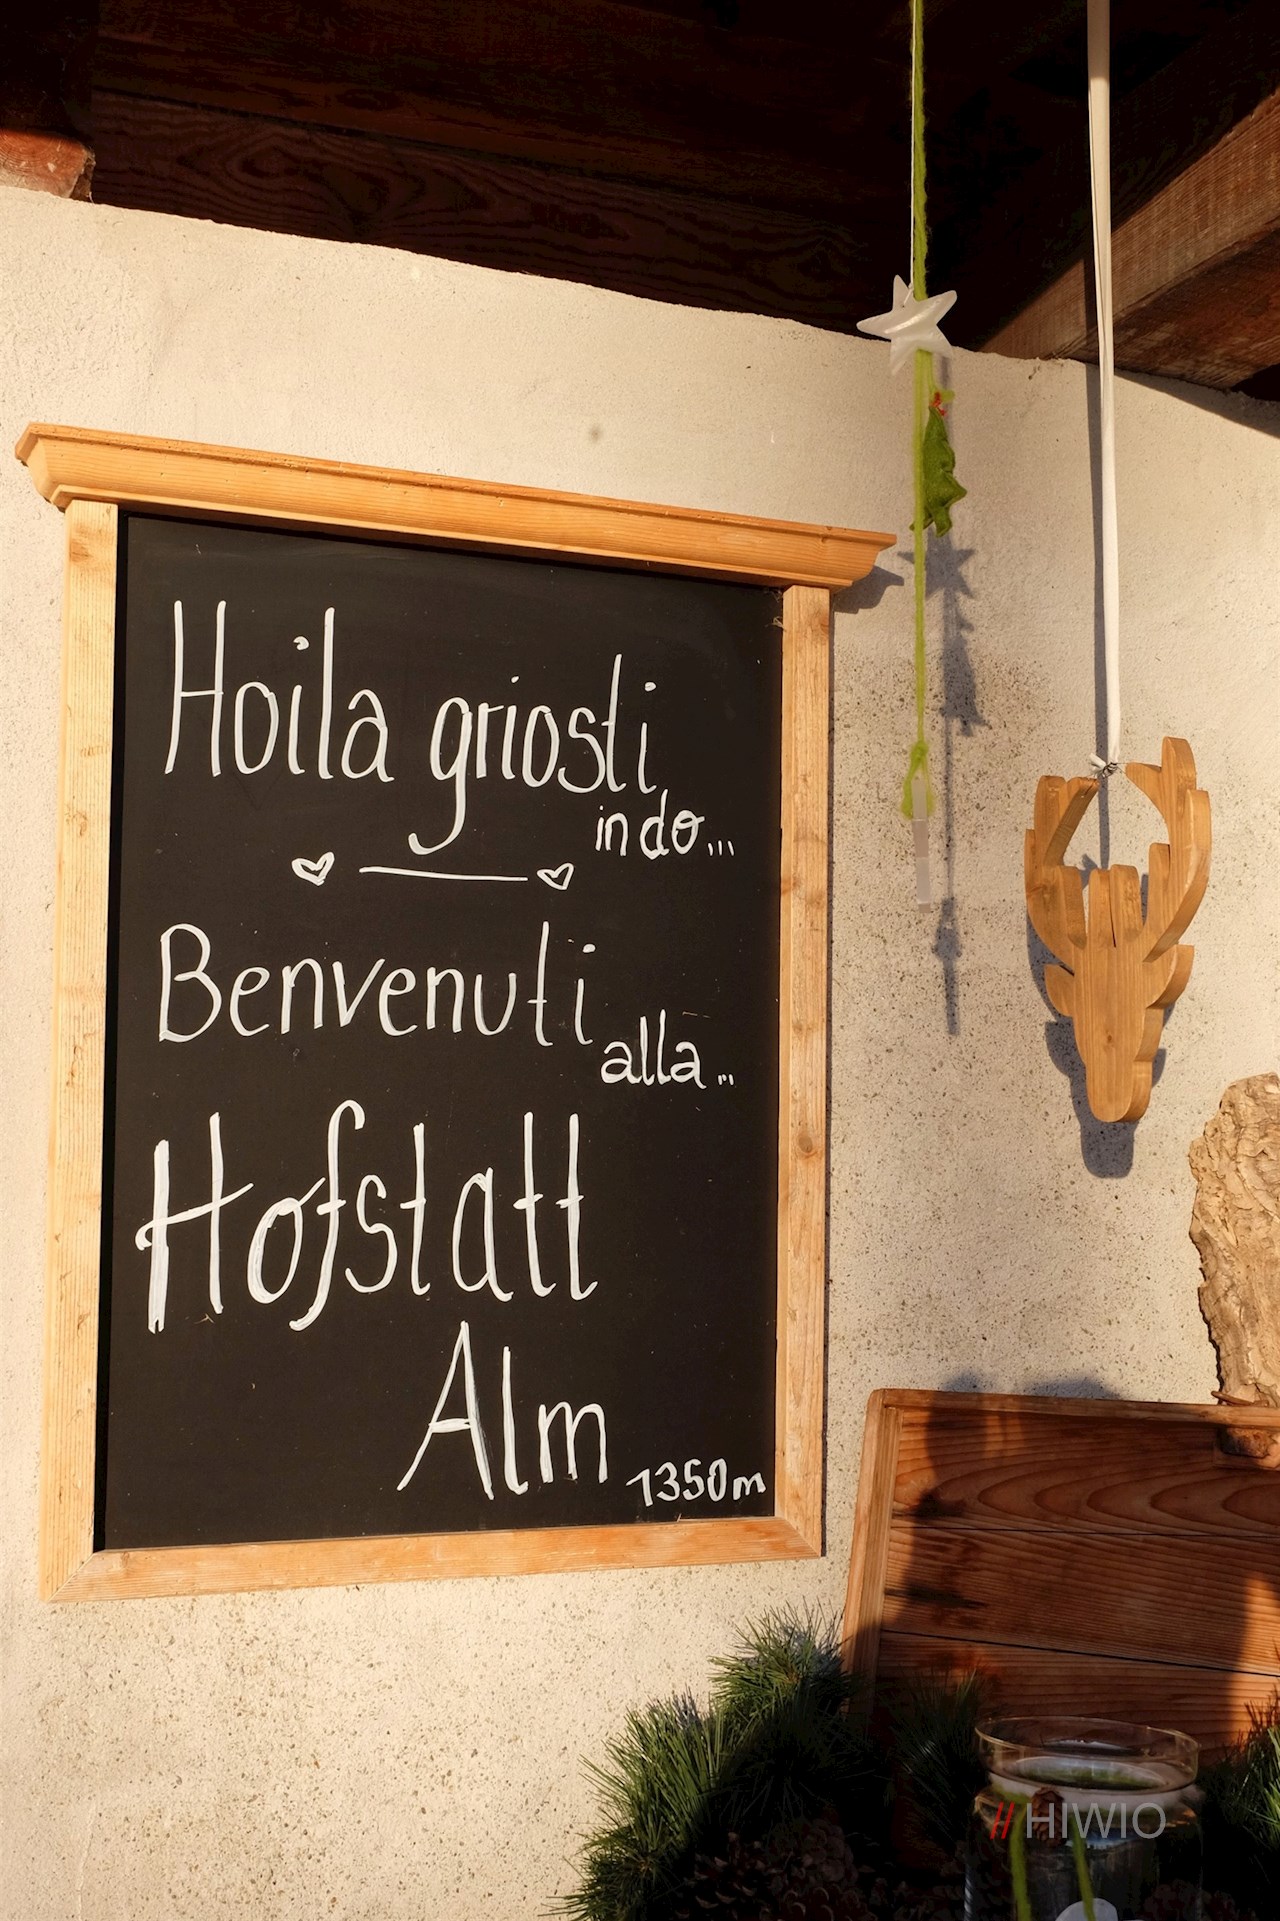 Hoila griasti
in do...
Benvenuti
alla...
Hofstatt
Alm
1350m
// HIWIO